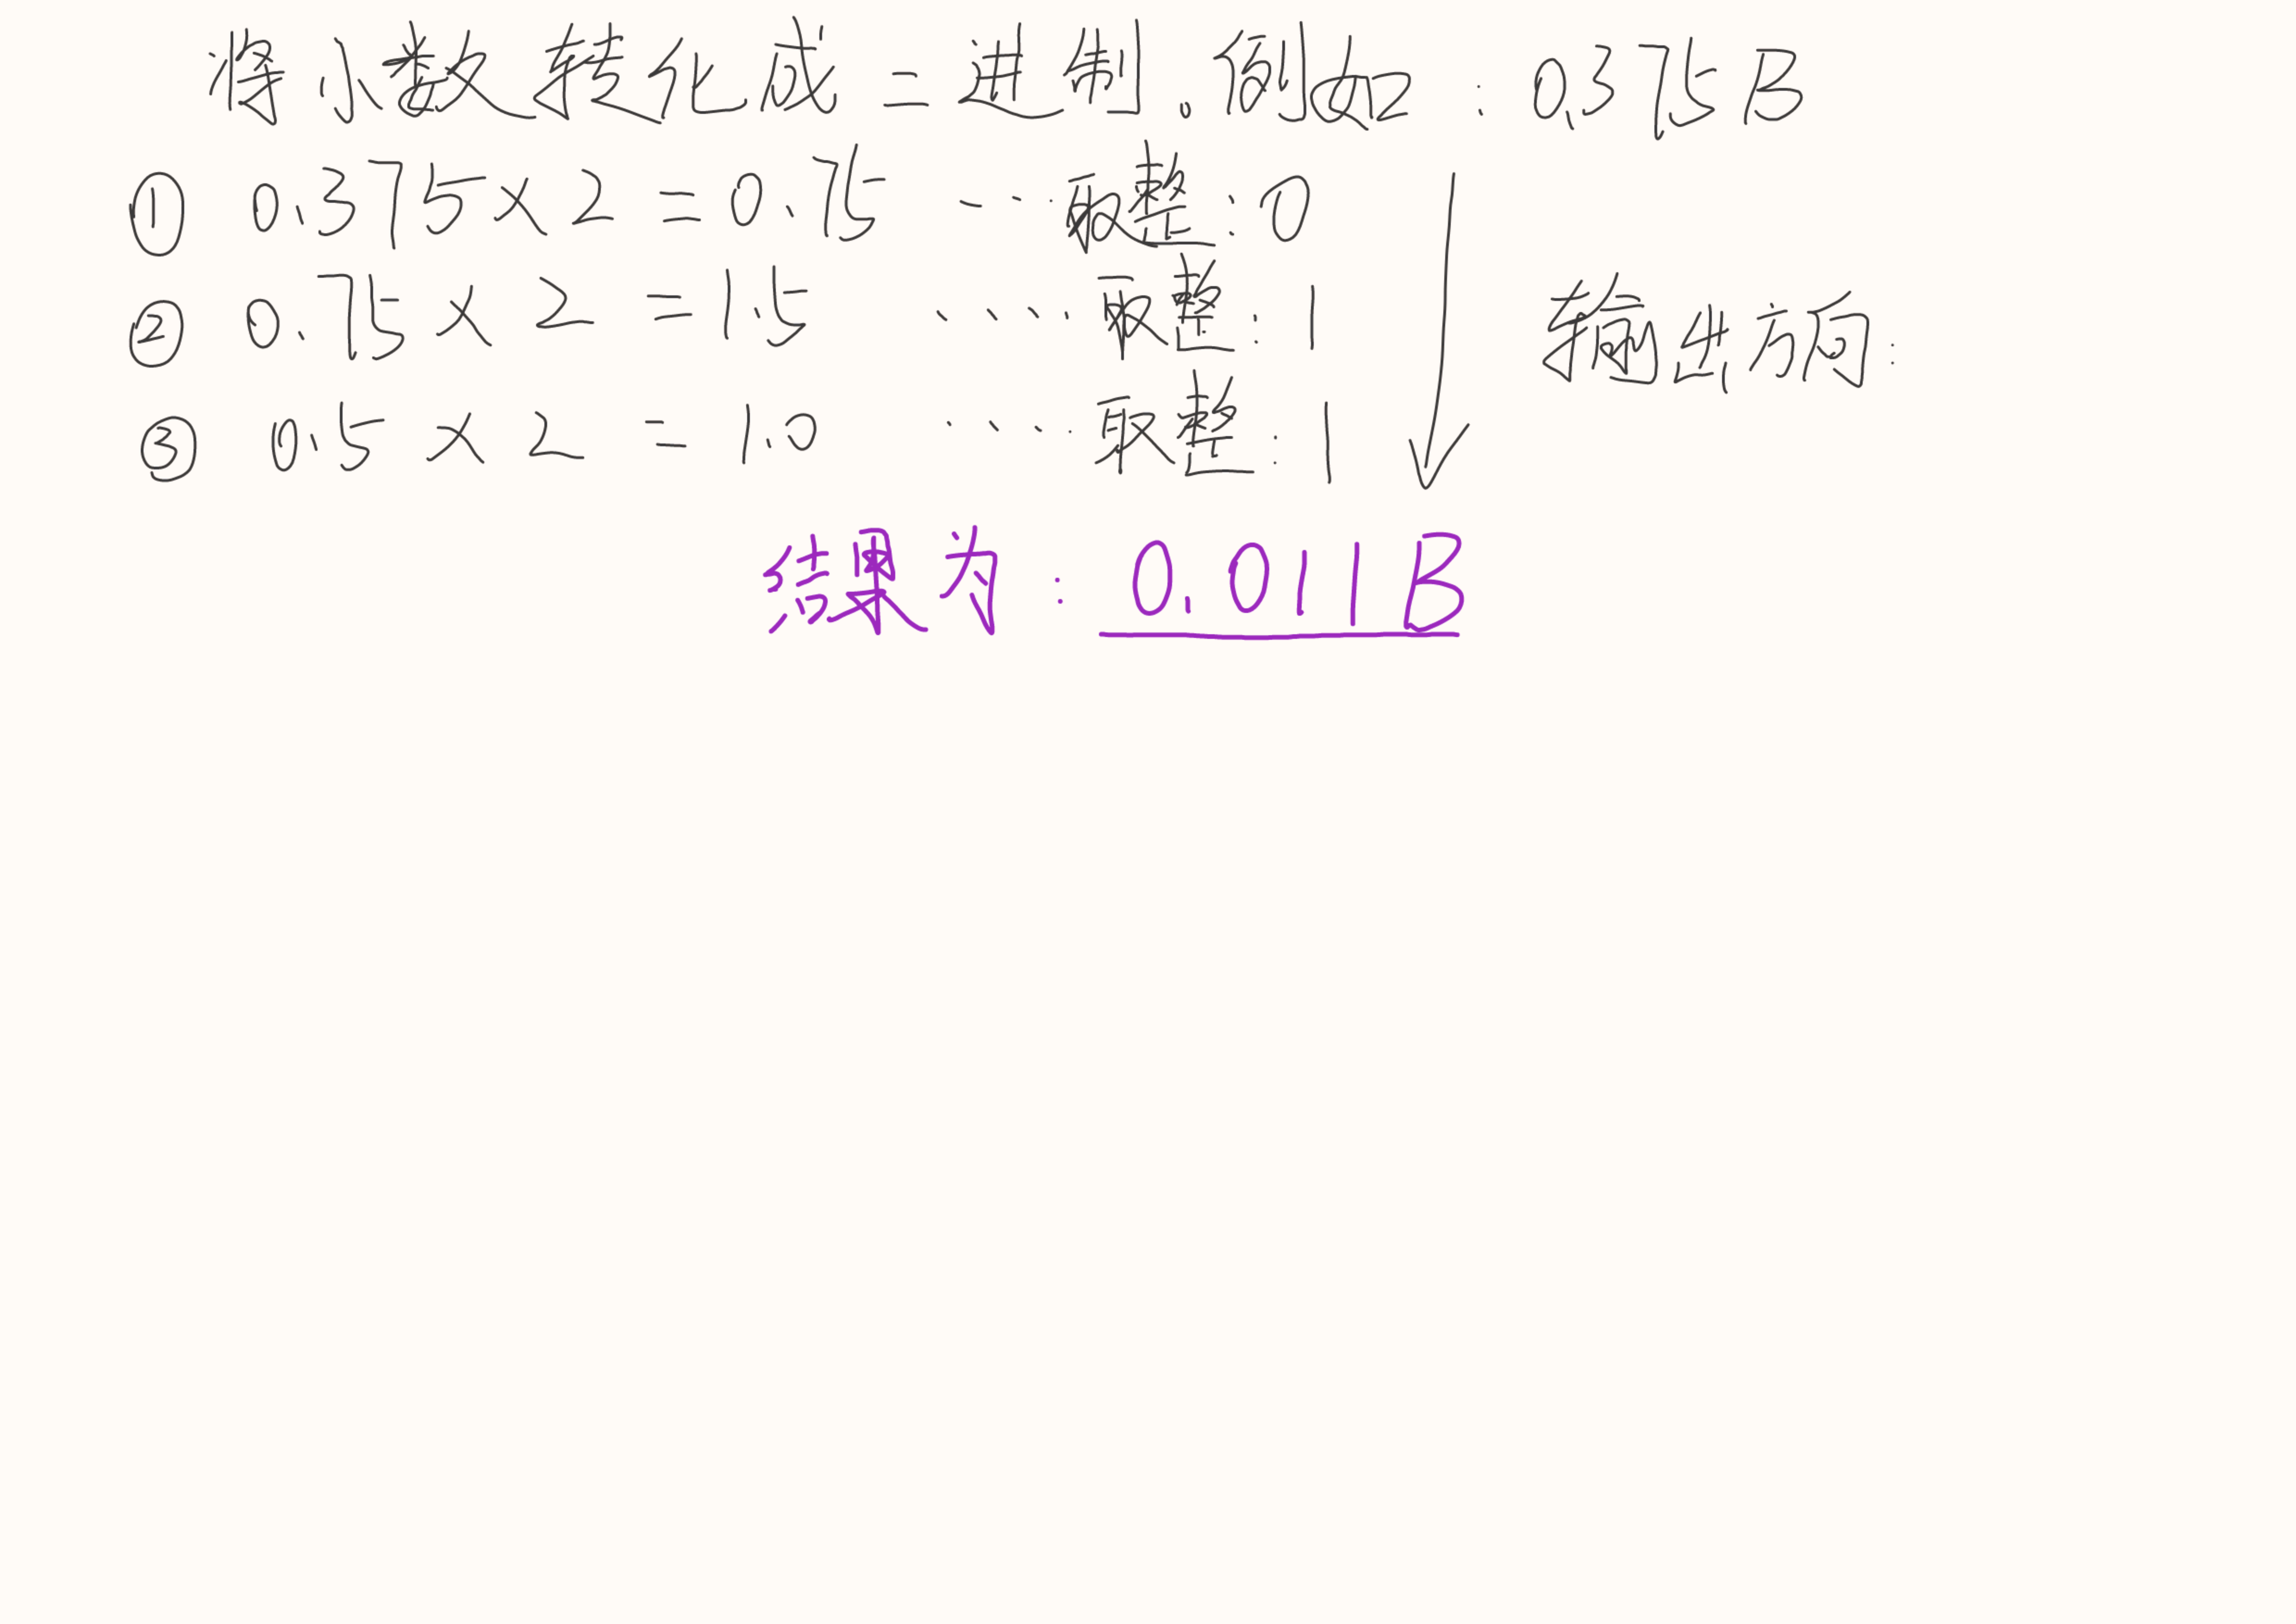 将小数转化成二进制。例如：0.375B
① 0.375×2=0.75 ···取整：0
② 0.75×2=1.5 ····取整：1
输出方向：
③ 0.5×2=1.0 ····取整：1
结果为：0.011B